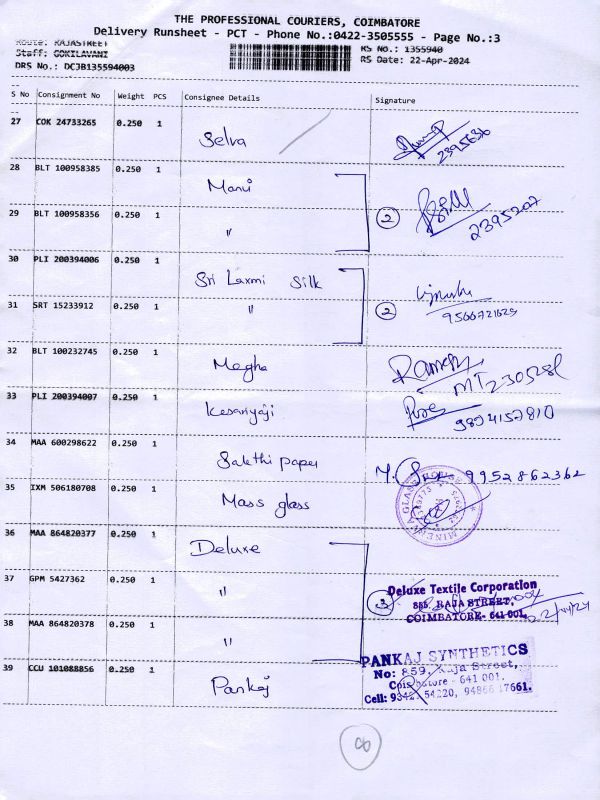 THE PROFESSIONAL COURIERS, COIMBATORE
Delivery Runsheet - PCT - Phone No.:0422-3505555 - Page No.:3
Route: RAJASTREET
Staff: GOKILAVANI
DRS No.: DCJB135594003
RS No.: 1355940
RS Date: 22-Apr-2024
S No Consignment No Weight PCS Consignee Details Signature
27 COK 24733265 0.250 1 Selva 2395636
28 BLT 100958385 0.250 1 Manu
29 BLT 100958356 0.250 1 " 2 2395207
30 PLI 200394006 0.250 1 Sri Laxmi Silk
31 SRT 15233912 0.250 1 " 2 9566721629
32 BLT 100232745 0.250 1 Megha Ramesh MT230528
33 PLI 200394007 0.250 1 Kesariyaji 9894157810
34 MAA 600298622 0.250 1 Sakthi paper 9952862362
35 IXM 506180708 0.250 1 Mass glass
MINERVA GLASS HOUSE
36 MAA 864820377 0.250 1 Deluxe
37 GPM 5427362 0.250 1 " 3
Deluxe Textile Corporation
885, RAJA STREET,
COIMBATORE - 641 001.
38 MAA 864820378 0.250 1 "
39 CCU 101088856 0.250 1 Pankaj
PANKAJ SYNTHETICS
No: 859, Raja Street,
Coimbatore - 641 001.
Cell: 54220, 94866 17661.